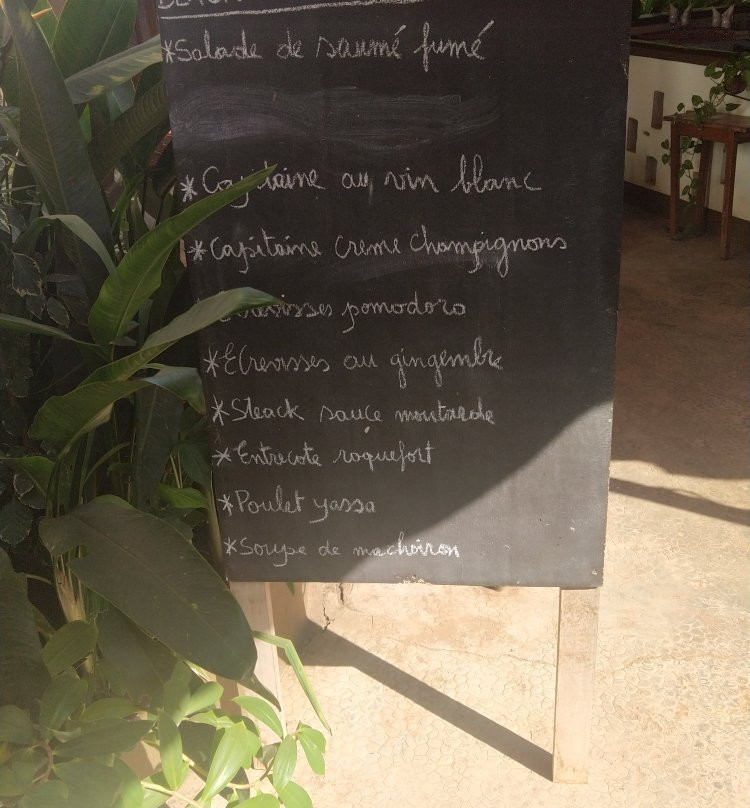 *Salade de saumé fumé
*Capitaine au vin blanc
*Capitaine creme champignons
pomodoro
*Ecrevisses au gingembre
*Steack sauce moutarde
*Entrecote roquefort
*Poulet yassa
*Soupe de machoiron